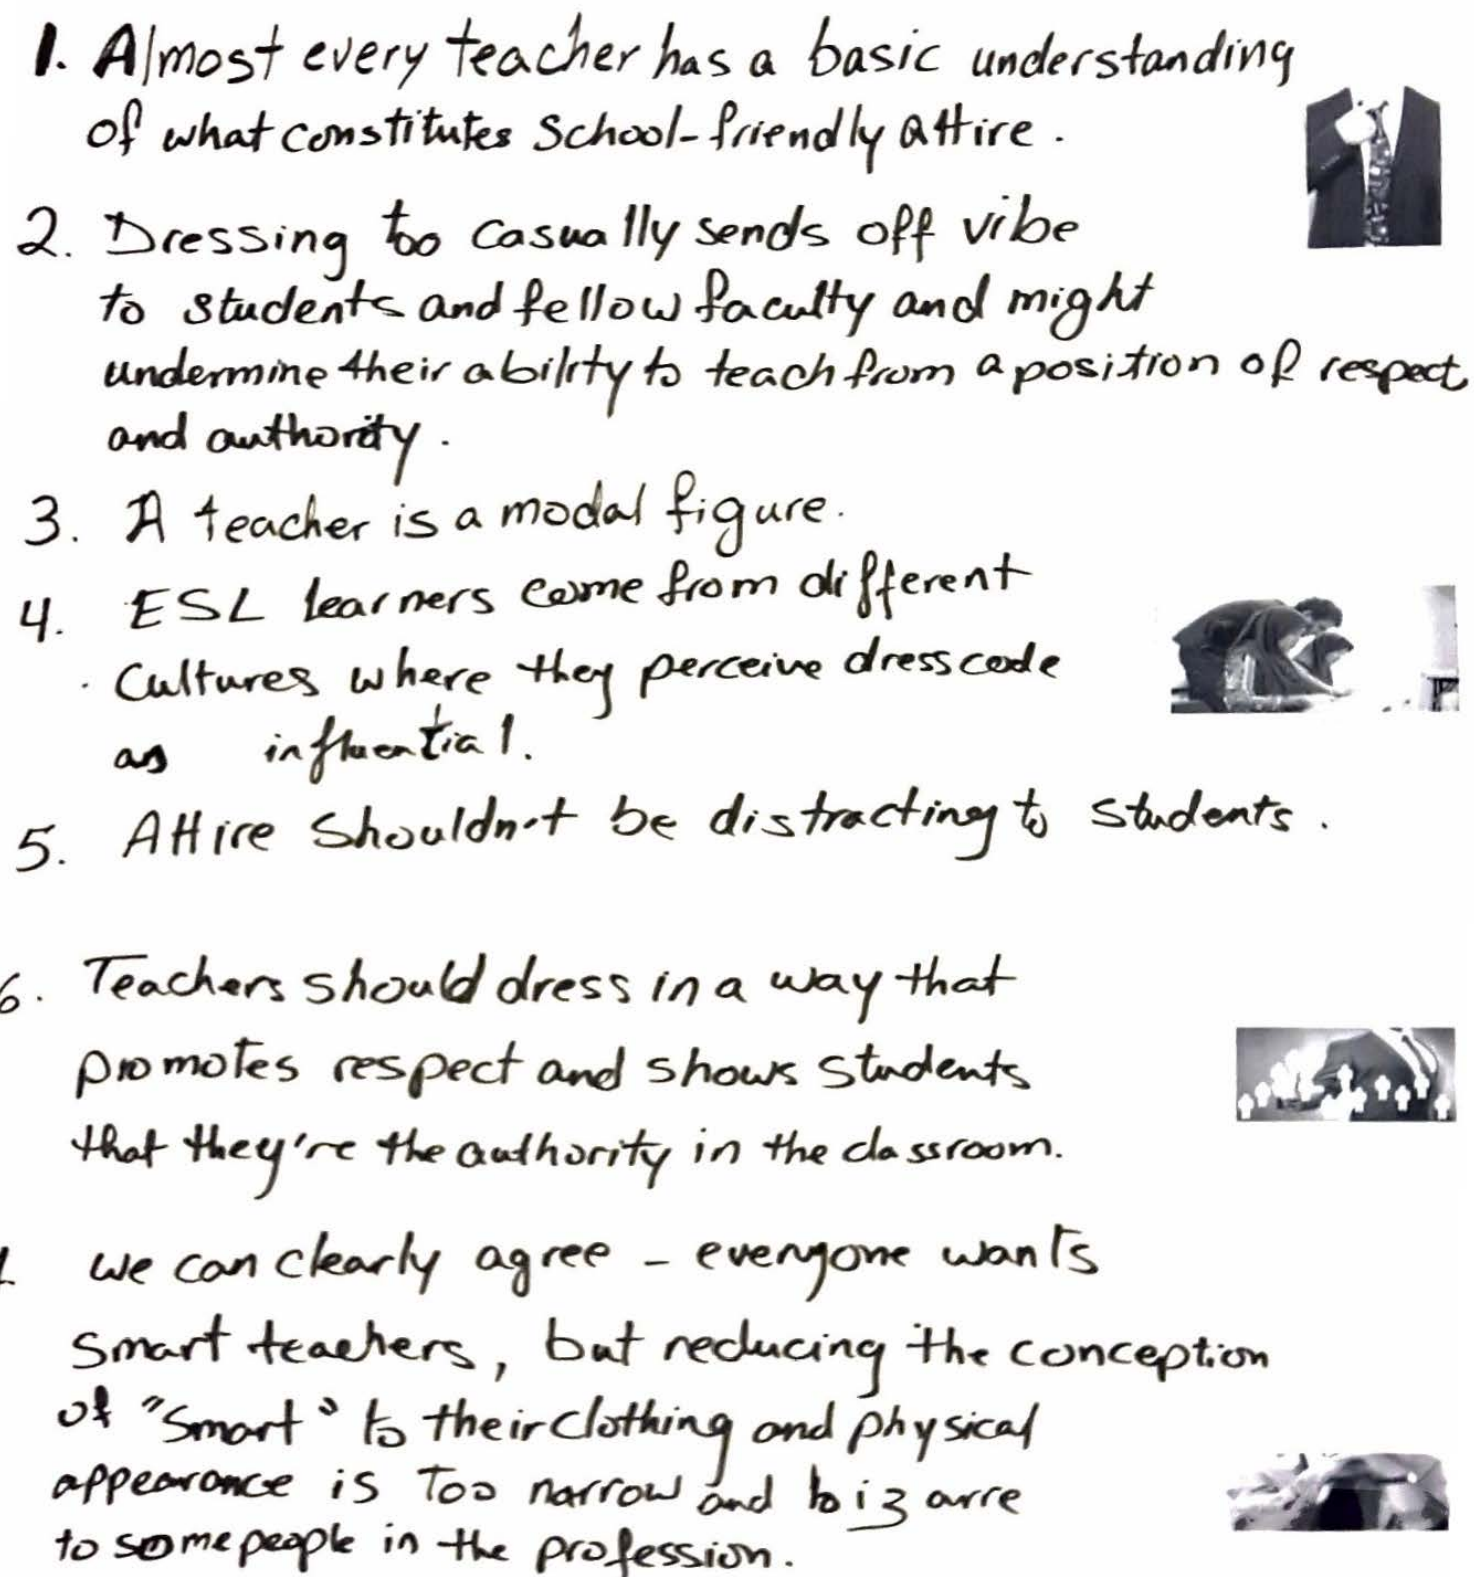 1. Almost every teacher has a basic understanding
of what constitutes School-friendly attire.
2. Dressing too casually sends off vibe
to students and fellow faculty and might
undermine their ability to teach from a position of respect
and authority.
3. A teacher is a modal figure.
4. ESL learners come from different
Cultures where they perceive dress code
as influential.
5. Attire Shouldn't be distracting to students.
6. Teachers should dress in a way that
promotes respect and shows students
that they're the authority in the classroom.
we can clearly agree - everyone wants
smart teachers, but reducing the conception
of "Smart" to their clothing and physical
appearance is Too narrow and bizarre
to some people in the profession.